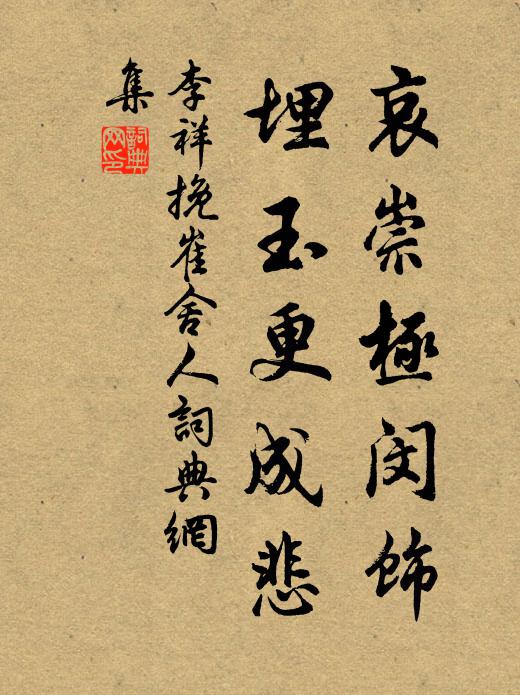 哀崇極閔飾
埋玉更成悲
李祥挽崔舍人詞典網
集
詞典網印